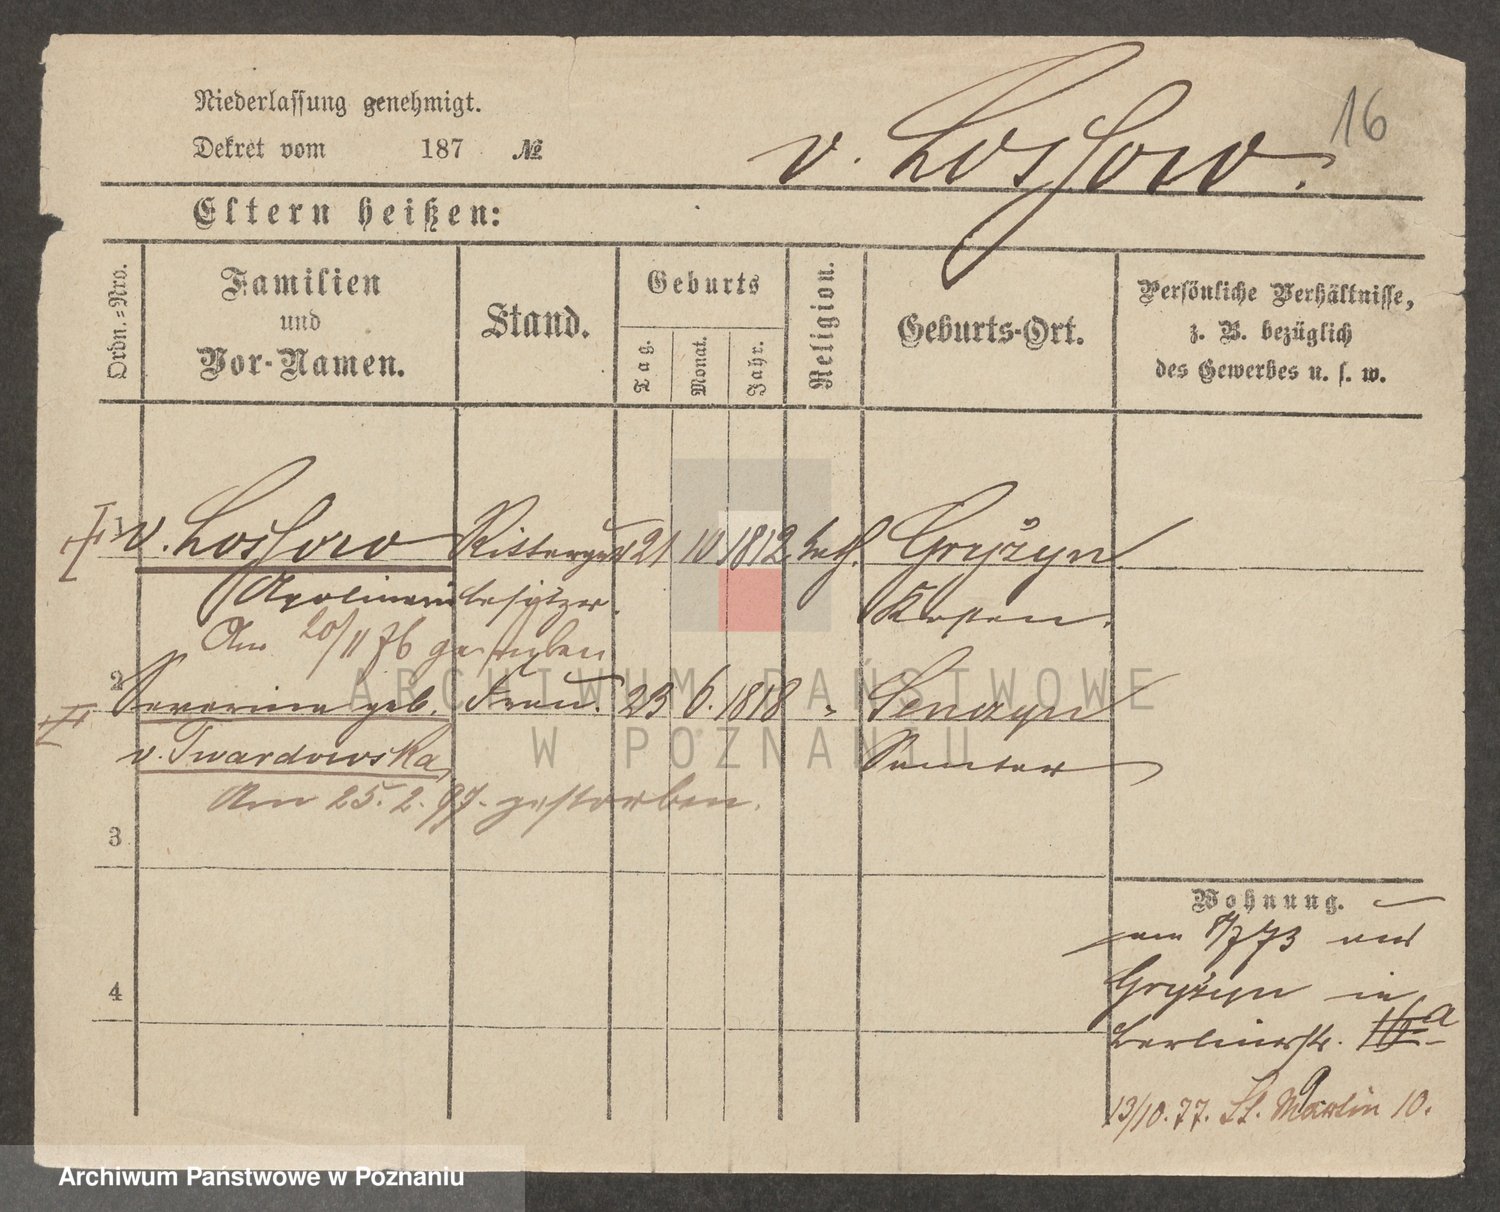 Niederlassung genehmigt.
Dekret vom 187 №
v. Lossow.
16
Eltern heißen:
Ordn.=Nro.
Familien
und
Vor-Namen.
Stand.
Geburts
Tag.
Monat.
Jahr.
Religion.
Geburts-Ort.
Persönliche Verhältnisse,
z. B. bezüglich
des Gewerbes u. s. w.
1 v. Lossow Ritterguts 21 10 1812 kath. Gryżyn
Apolinari besitzer. Kosten.
Am 20/11 76 gestorben
2 Severina geb. Frau. 23 6. 1818 " Senczyn
v. Twardowska, Samter
Am 25. 2. 97. gestorben.
3
4
Wohnung.
am 8/7 73 aus
Gryżyn in
Berlinerstr. 16a
13/10. 77. St. Martin 10.
ARCHIWUM PAŃSTWOWE
W POZNANIU
Archiwum Państwowe w Poznaniu